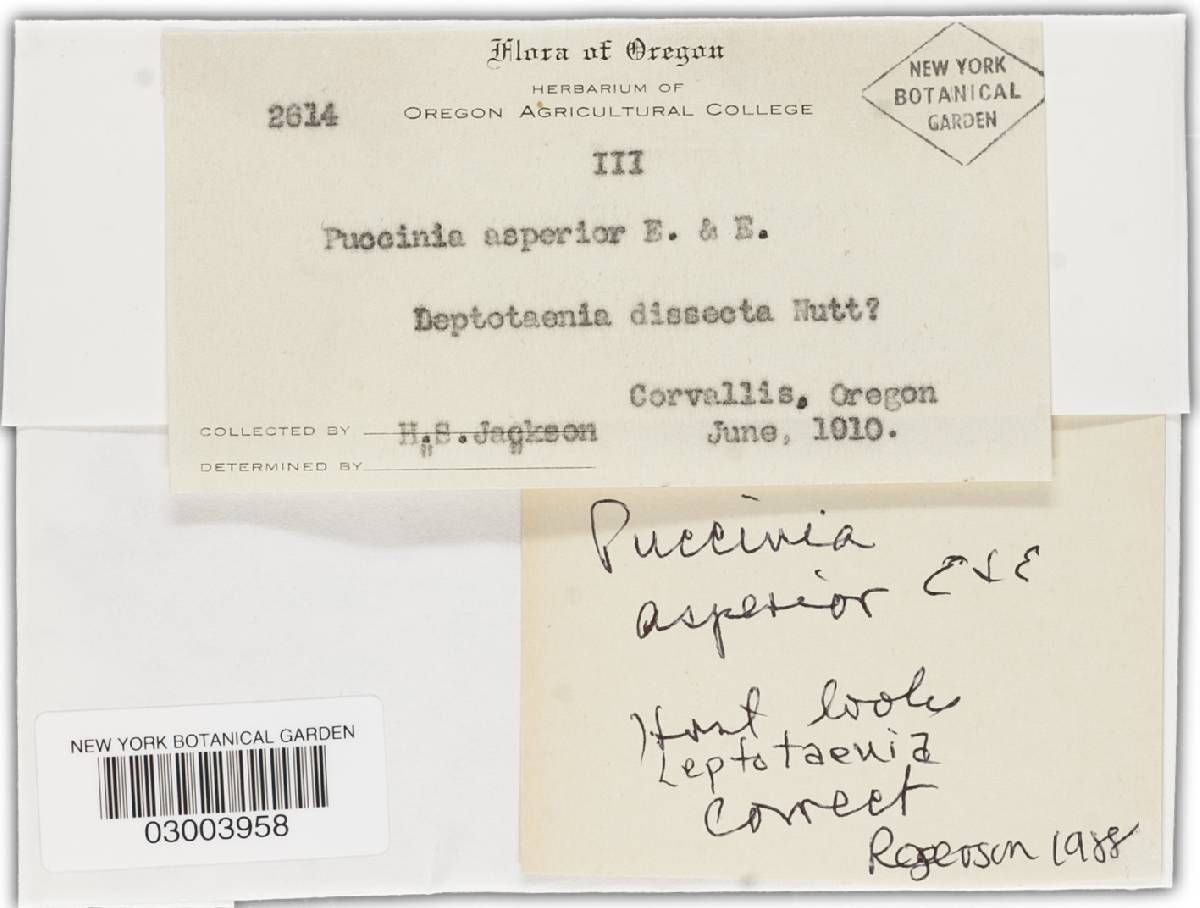 Flora of Oregon
HERBARIUM OF
OREGON AGRICULTURAL COLLEGE
2614
NEW YORK
BOTANICAL
GARDEN
III
Puccinia asperior E. & E.
Leptotaenia dissecta Nutt?
Corvallis, Oregon
COLLECTED BY H.S.Jackson June, 1910.
DETERMINED BY " "
Puccinia
asperior E & E
Host looks
Leptotaenia
correct
Rogerson 1988
NEW YORK BOTANICAL GARDEN
03003958